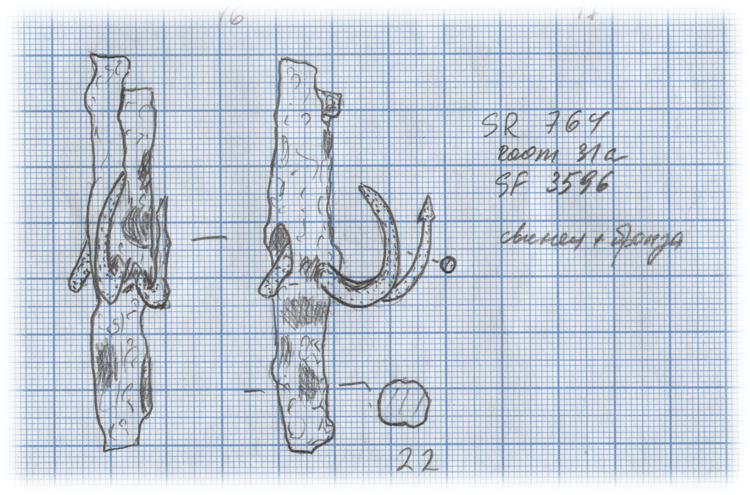 16
17
SR 764
room 31a
SF 3596
свинец + бронза
22